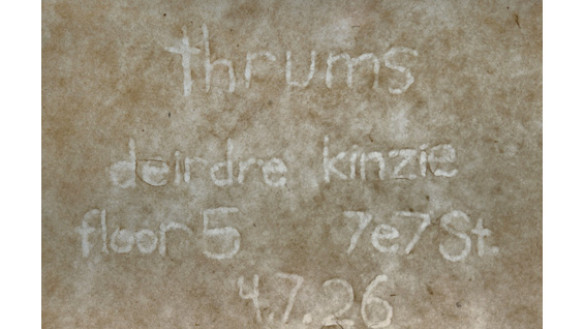 thrums
deirdre kinzie
floor 5 7e7 St.
4.7.26